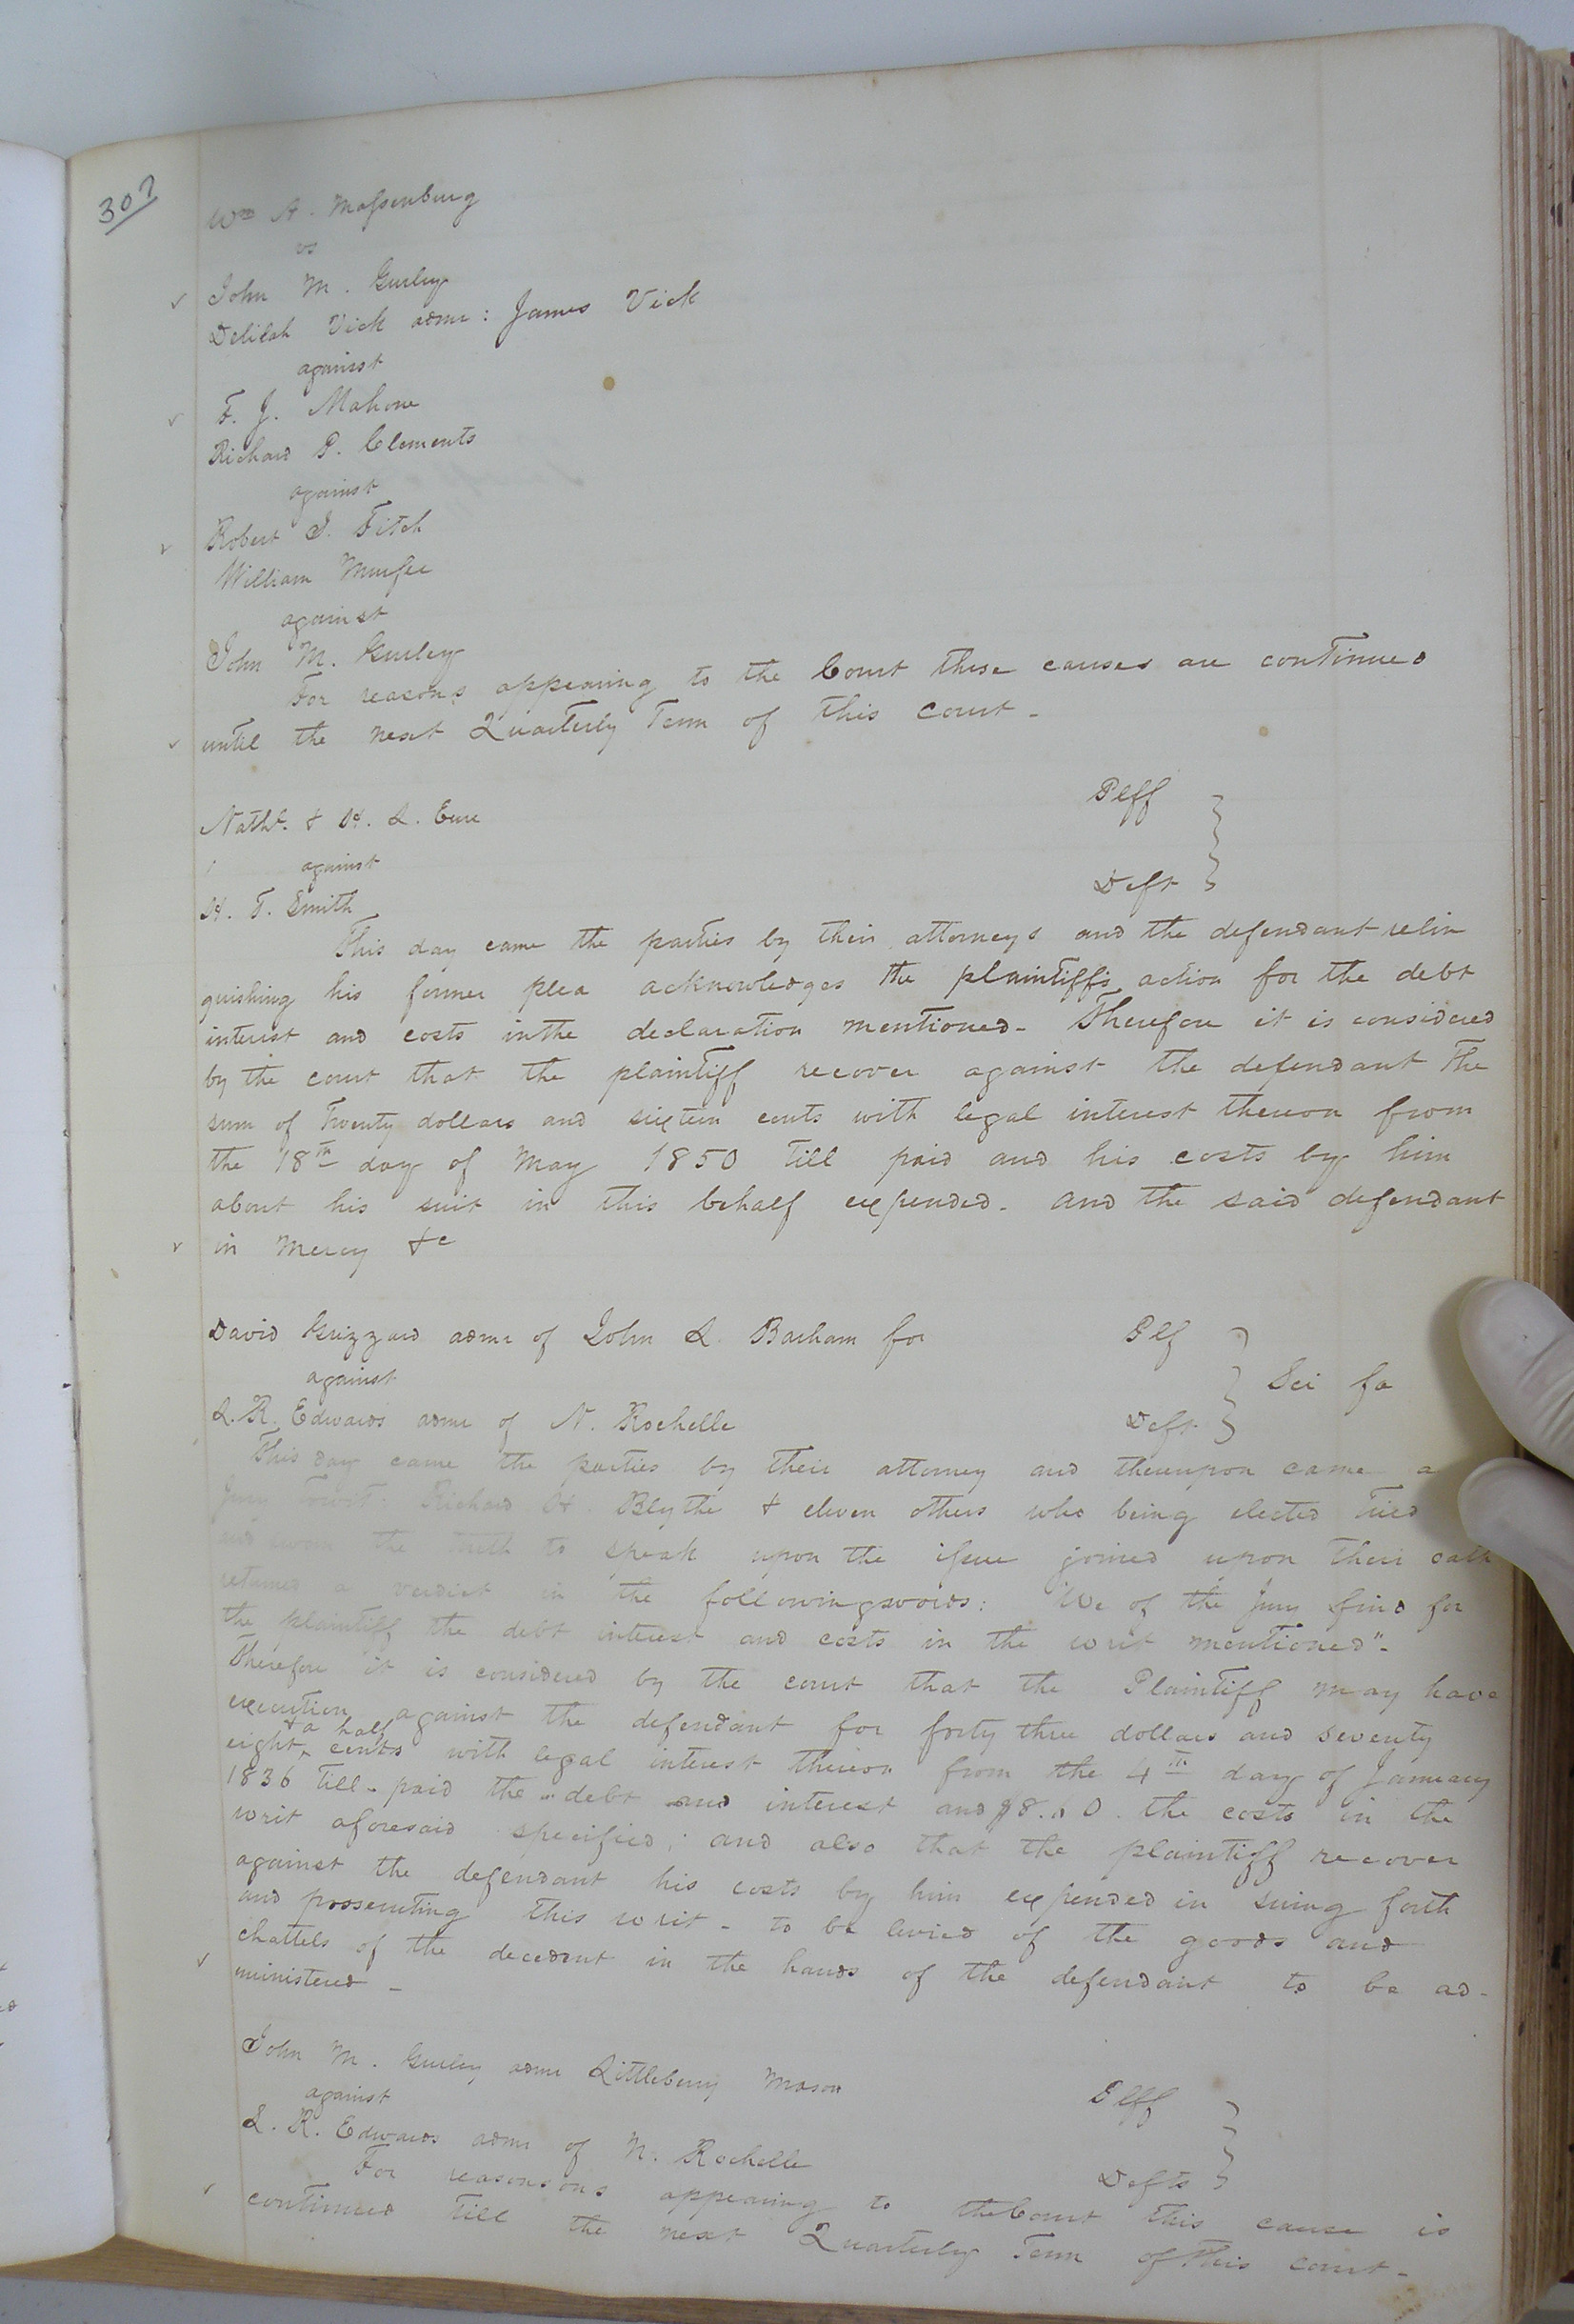 307
Wm A. Massenburg
vs
John M. Gurley
Delilah Vick admr: James Vick
against
F. J. Mahone
Richard P. Clements
against
Robert S. Fitch
William Murfee
against
John M. Gurley
For reasons appearing to the Court these causes are continued
until the next Quarterly Term of this court -
Nathl. & H. L. Eure Plff
against
H. T. Smith Deft
This day came the parties by their attorneys and the defendant relin
quishing his former plea acknowledges the plaintiffs action for the debt
interest and costs in the declaration mentioned - Therefore it is considered
by the court that the plaintiff recover against the defendant the
sum of Twenty dollars and sixteen cents with legal interest thereon from
the 18th day of May 1850 till paid and his costs by him
about his suit in this behalf expended - and the said defendant
in Mercy &c
David Grizzard admr of John L. Barham for Plf
against Sci fa
L. R. Edwards admr of N. Rochelle Deft
This day came the parties by their attorney and thereupon came a
Jury Towit: Richard H. Blythe & eleven others who being elected tried
and sworn the truth to speak upon the issue joined upon their oath
returned a verdict in the following words: "We of the Jury find for
the plaintiff the debt interest and costs in the writ mentioned"-
Therefore it is considered by the court that the Plaintiff may have
execution against the defendant for forty three dollars and seventy
eight & a half cents with legal interest thereon from the 4th day of January
1836 till paid the debt and interest and the costs in the
writ aforesaid specified; and also that the plaintiff recover
against the defendant his costs by him expended in suing forth
and prosecuting this writ - to be levied of the goods and
chattels of the decedent in the hands of the defendant to be ad-
ministered -
John M. Gurley admr Littleberry Mason Plff
against
L. R. Edwards admr of N. Rochelle Defts
For reasonsons appearing to the Court this cause is
continued till the next Quarterly Term of this court -